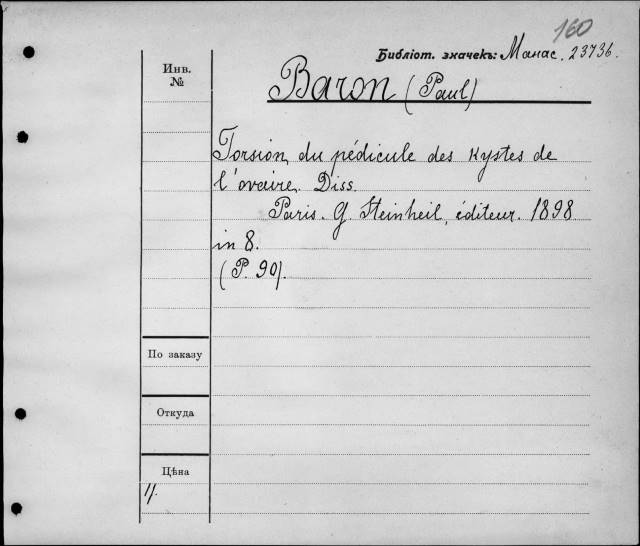 160
Библіот. значекъ: Манас. 23736.
Инв.
№
Baron (Paul)
Torsion du pédicule des kystes de
l'ovaire. Diss.
Paris. G. Steinheil, éditeur. 1898
in 8.
(P. 90).
По заказу
Откуда
Цѣна